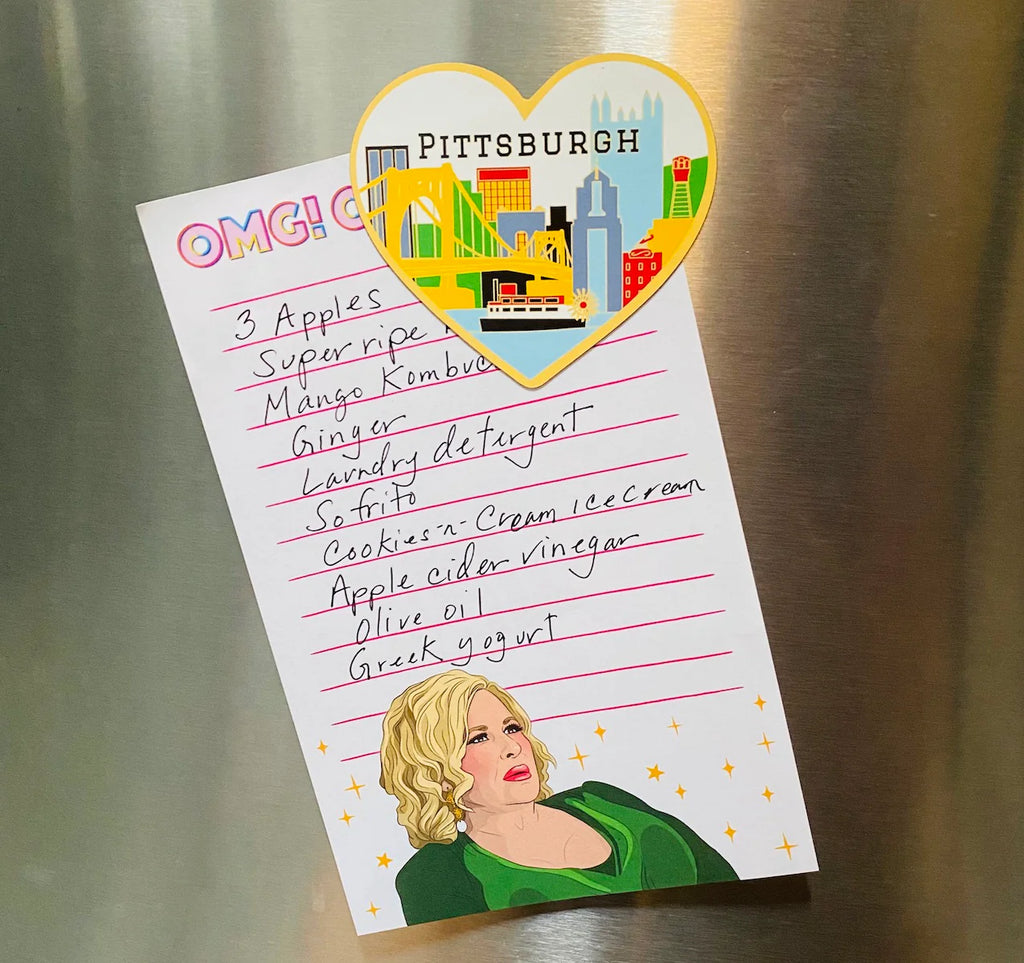 PITTSBURGH
OMG!
3 Apples
Super ripe
Mango
Ginger
Laundry detergent
Sofrito
Cookies-n-Cream ice cream
Apple cider vinegar
Olive oil
Greek yogurt